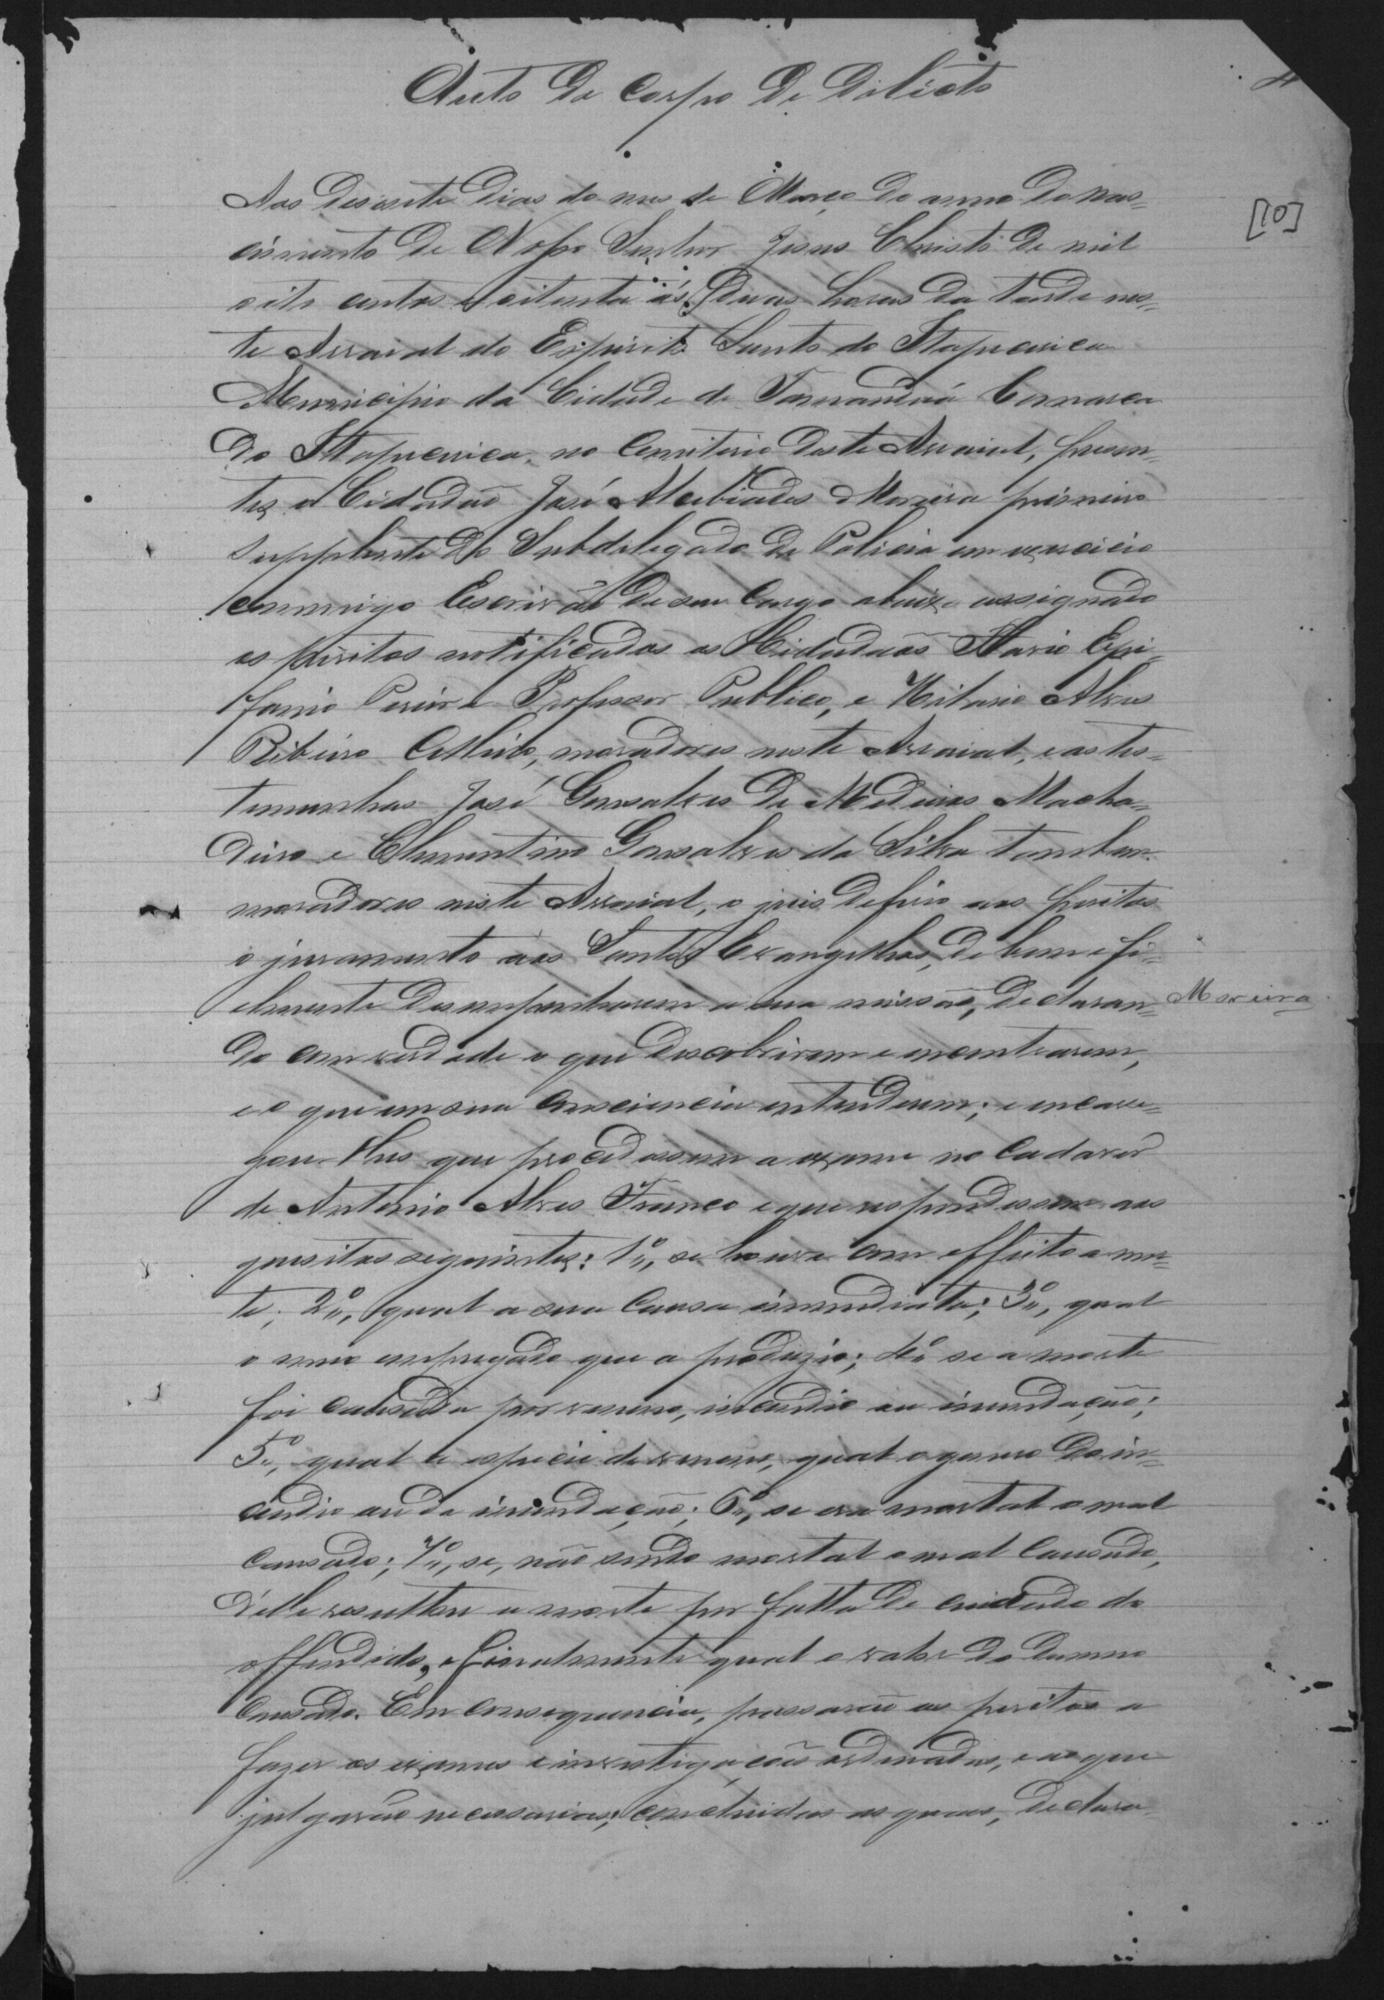 Auto de Corpo de Delicto
[10]
Aos desesete dias do mes de Março do anno do nas=
cimento de Nosso Senhor Jesus Christo de mil
oito centos e oitenta ás duas horas da tarde nes=
te Arraial do Espirito Santo do Itapecerica
Municipio da Cidade de Tamanduá Comarca
do Itapecerica, no Cemiterio deste Arraial, presen=
tes o Cidadão José Alcebiades Moreira primeiro
supplente do Subdelegado de Policia em exercicio
commigo Escrivão de seu Cargo abaixo assignado
os peritos notificados os Cidadaõs Flavio Epi=
fanio Pereira Professor Publico, e Hilario Alves
Ribeiro, moradores neste Arraial, e as tes=
temunhas José Gonsalves de Medeiros Macha=
deiro e Clementino Gonsalves da Silva tambem
moradores neste Arraial, o juis deferio aos peritos
o juramento aos Santos Evangelhos, de bem e fi=
elmente desempenharem a sua missaõ, declaran=
Moreira
do com verdade o que descobrirem e encontrarem,
e o que em sua consciencia entenderem; e encarre=
gou-lhes que procedessem a exame no Cadaver
de Antonio Alves Franco e que respondessem aos
quesitos seguintes: 1º, se houve com effeito a mor=
te; 2º, qual a sua causa immediata; 3º, qual
o meio empregado que a produzio; 4º se a morte
foi causada por veneno, incendio ou inundação;
5º, qual a especie de veneno, qual o genero do in=
cendio ou da inundação; 6º, se era mortal o mal
causado; 7º, se, não sendo mortal o mal causado,
d'elle resultou a morte por falta de cuidado do
offendido, e finalmente qual o valor do damno
causado. Em consequencia, passaraõ os peritos a
fazer os exames e investigaçoẽs ordenadas, e as que
julgaraõ necessarias; concluidas as quaes, declara